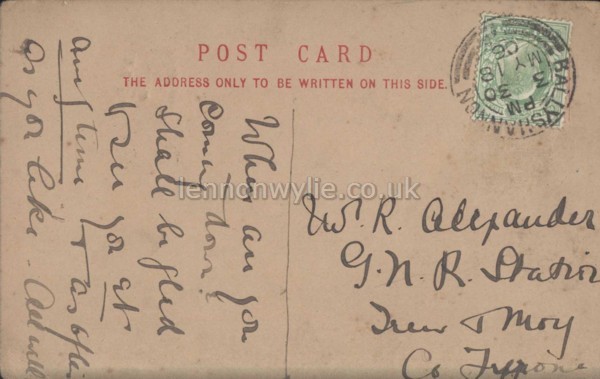 POST CARD
THE ADDRESS ONLY TO BE WRITTEN ON THIS SIDE.
BALLYSHANNON
3 30 PM
MY 18
05
When are you
coming down?
Shall be glad
to see you at
any time & as often
as you like - All well
Mr. R. Alexander
G. N. R. Station
Trew & Moy
Co Tyrone
lennonwylie.co.uk